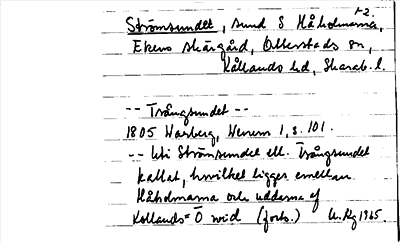 +2.
Strömsundet, sund S Håholmarna,
Ekens skärgård, Otterstads sn,
Kållands hd, Skarab. l.
-- Trångsundet --
1805 Warberg, Wenern 1, s. 101.
-- uti Strömsundet ell. Trångsundet
kallat, hwilket ligger emellan
Håholmarna och uddarna af
Kollands=Ö wid (forts.) U.Rg 1965.